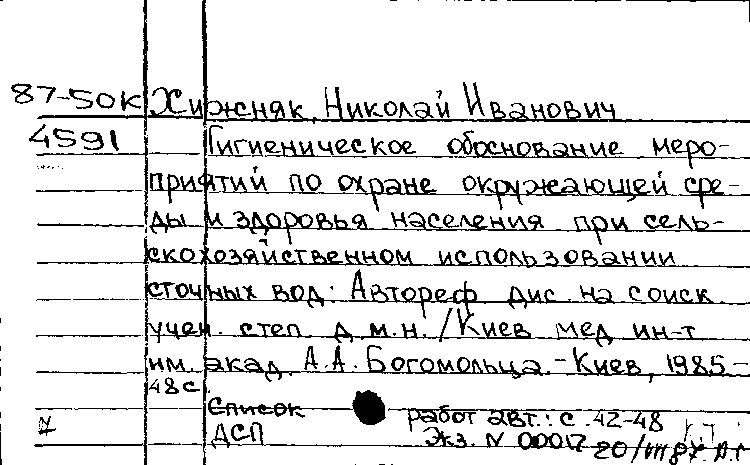 87-50К Хижняк, Николай Иванович
4591 Гигиеническое обоснование меро-
приятий по охране окружающей сре-
ды и здоровья населения при сель-
скохозяйственном использовании
сточных вод: Автореф. дис. на соиск.
учен. степ. д.м.н. / Киев. мед. ин-т
им. акад. А.А. Богомольца. - Киев, 1985.-
48 с.
Список работ авт.: с. 42-48
ДСП Экз. N 00017